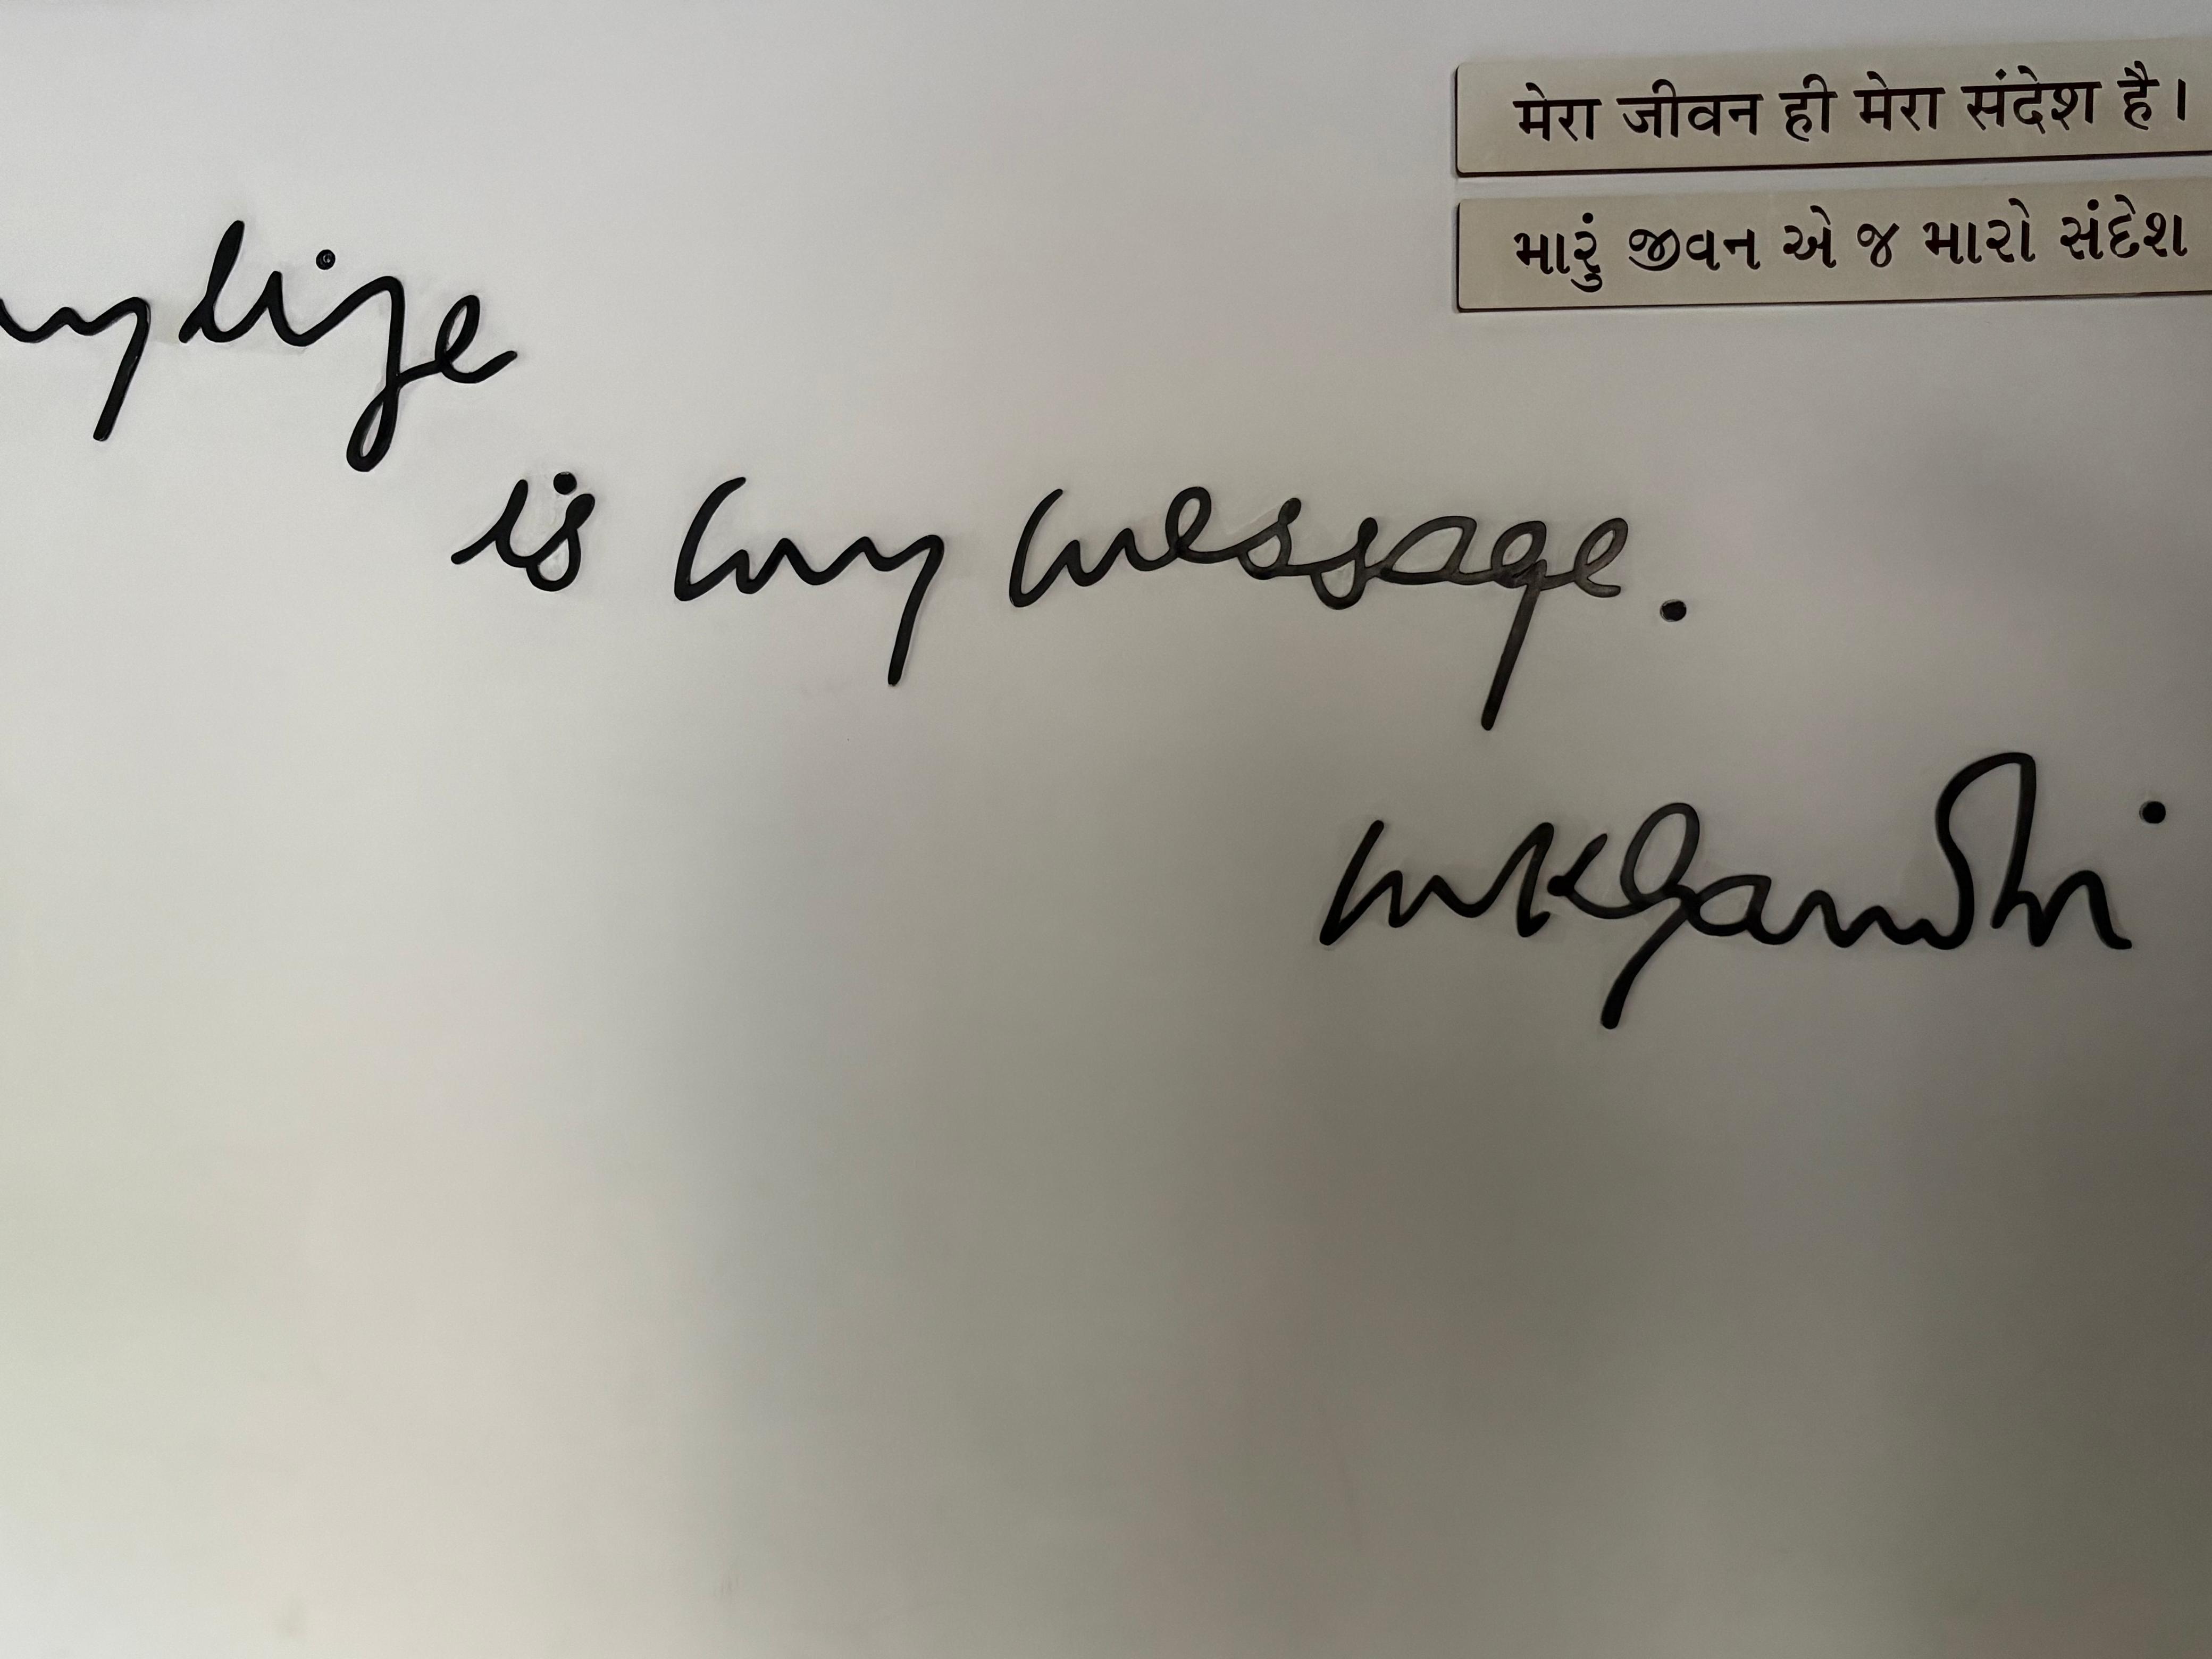 मेरा जीवन ही मेरा संदेश है।
મારું જીવન એ જ મારો સંદેશ
my life
is my message.
mkgandhi